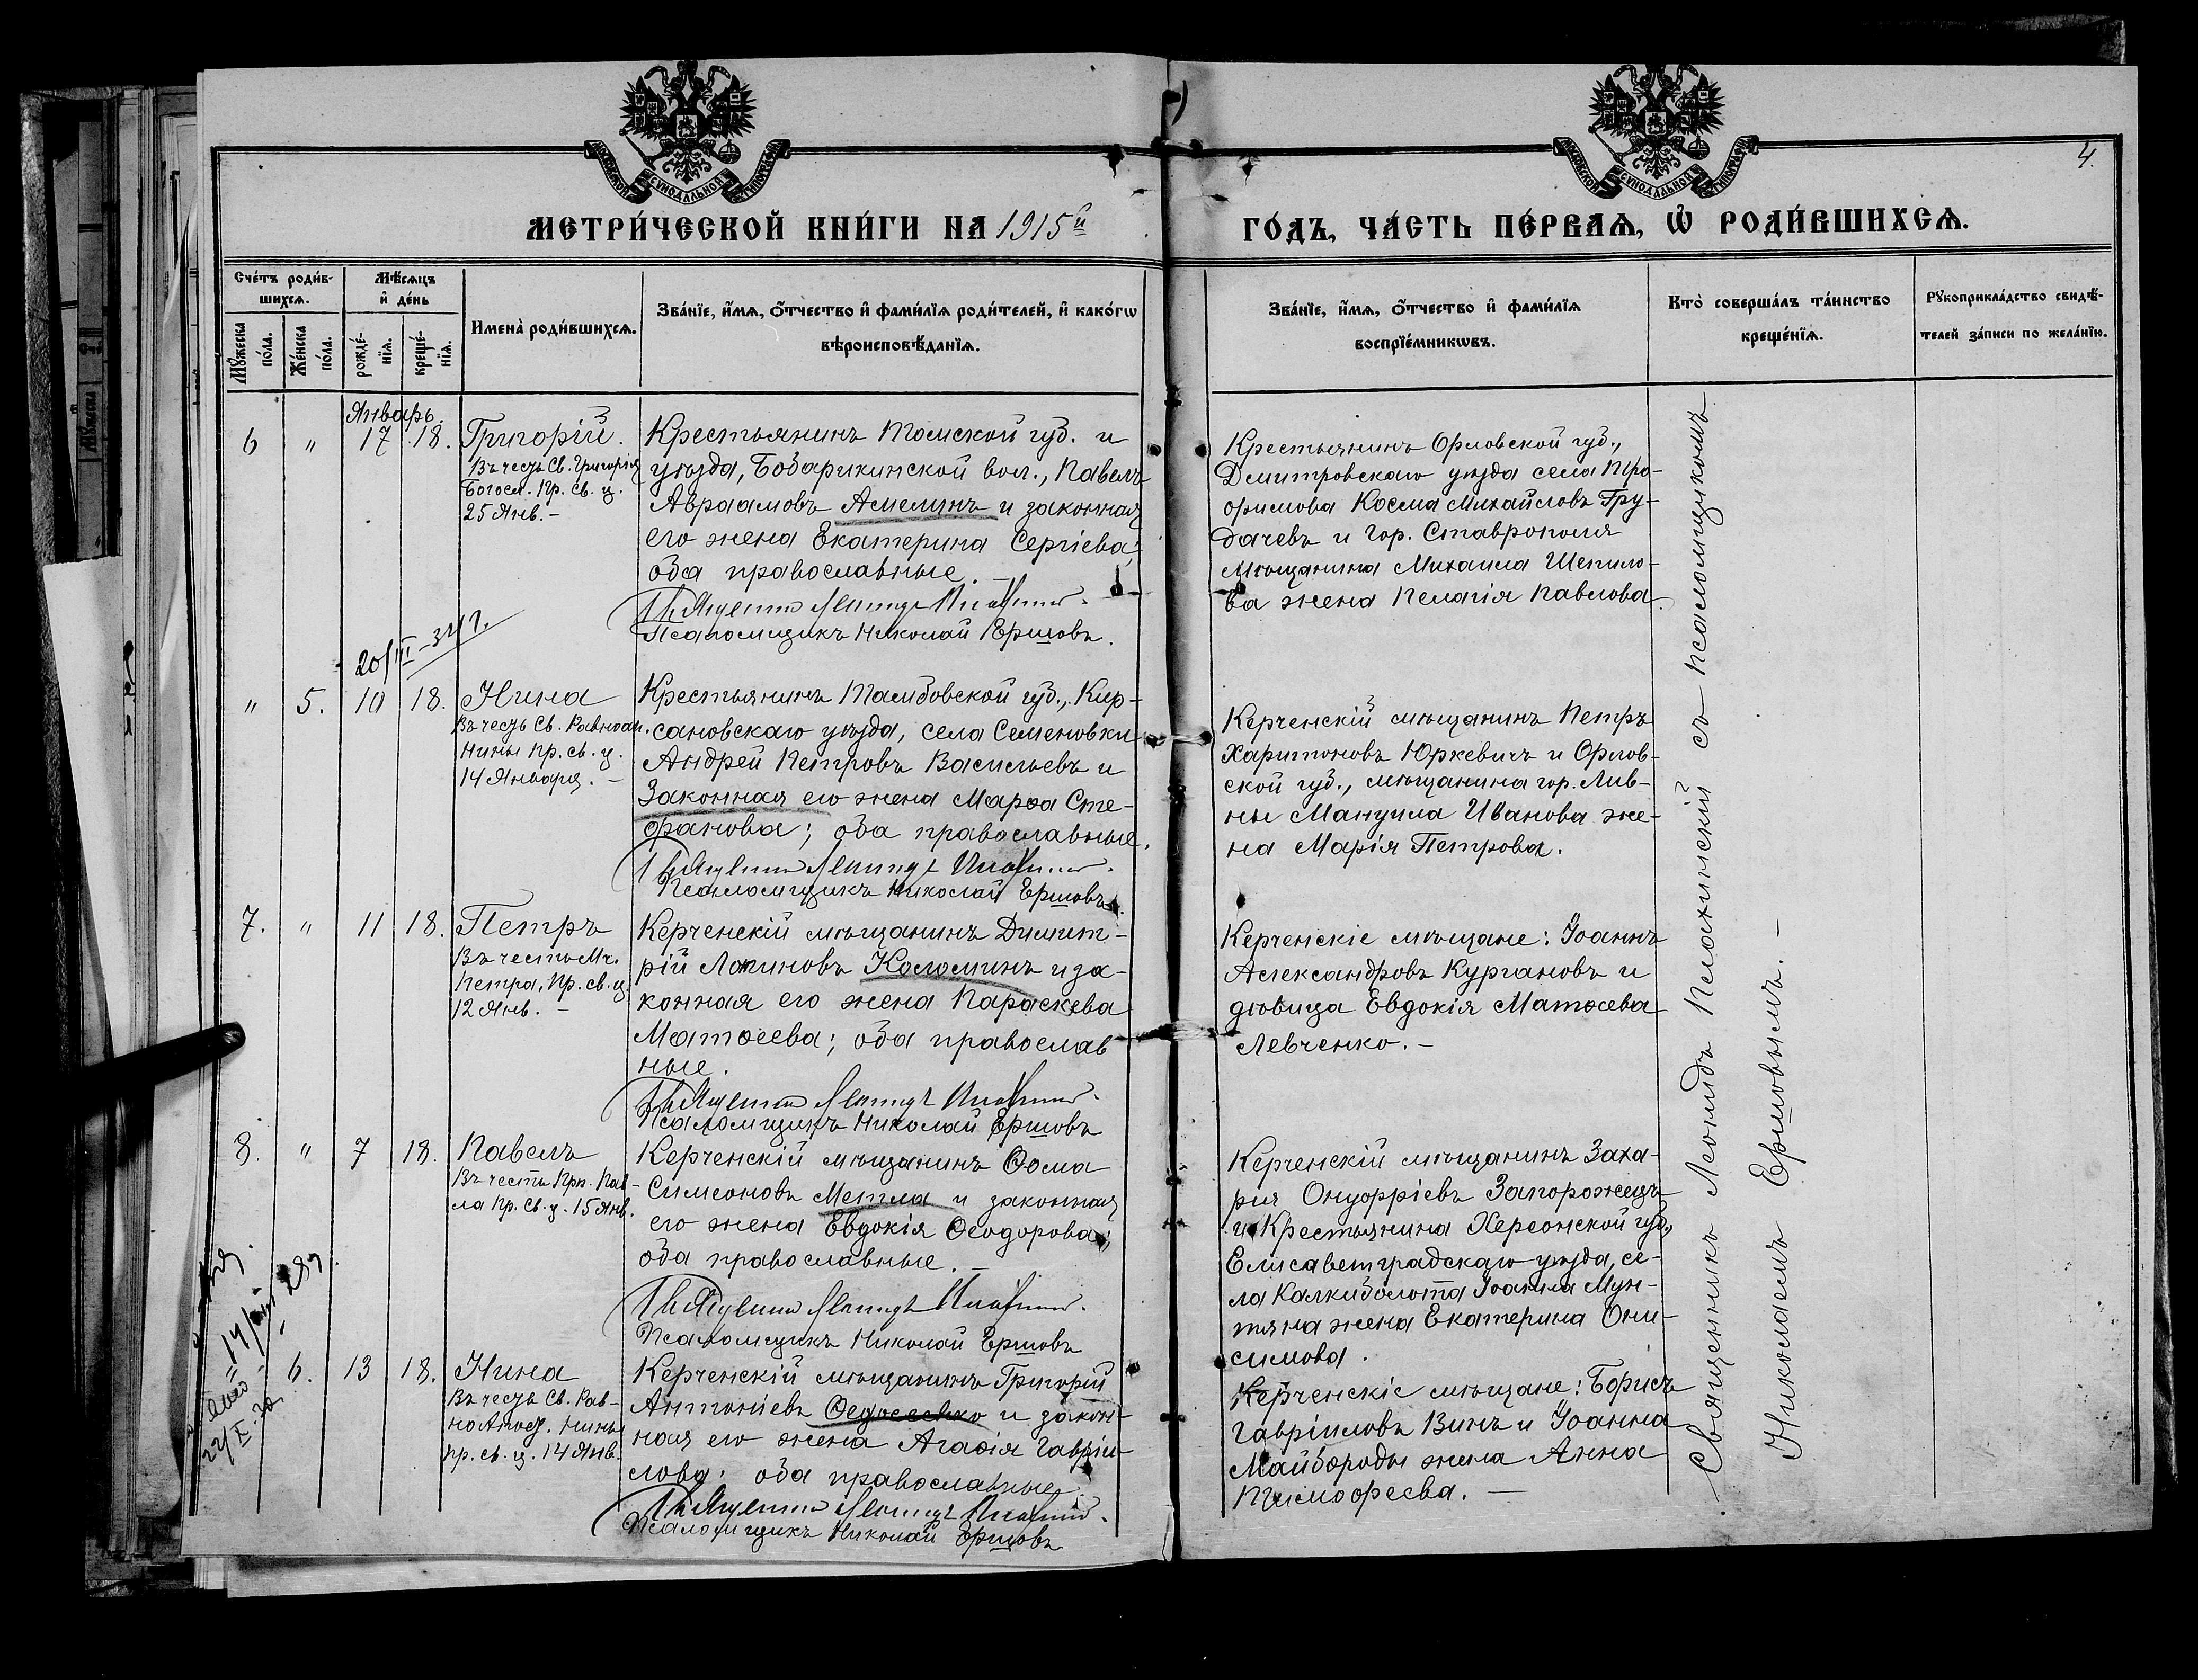 МЕТРИ́ЧЕСКОЙ КНИ́ГИ НА 1915й
ГО́ДЪ, ЧА́СТЬ ПЕ́РВАѦ, Ѡ҆ РОДИ́ВШИХСѦ.
4.
Сче́тъ роди́в-
шихсѧ.
Мѣ́сѧцъ
и҆ де́нь
Мꙋ́жеска
по́ла.
Же́нска
по́ла.
рожде́-
нїѧ.
креще́-
нїѧ.
Имена̀ роди́вшихсѧ.
Зва́нїе, и҆́мѧ, ѻ҆́тчество и҆ фами́лїѧ роди́телей, и҆ како́гѡ
вѣроисповѣ́данїѧ.
Зва́нїе, и҆́мѧ, ѻ҆́тчество и҆ фами́лїѧ
воспрїе́мникѡвъ.
Кто̀ соверша́лъ та́инство
креще́нїѧ.
Рꙋкоприкла́дство свидѣ́-
телей за́писи по жела́нїю.
Январь
6 " 17 18.
Григорій.
Въ честь Св. Григорія
Богосл. Пр. св. ц.
25 Янв. –
Крестьянинъ Томской губ. и
уѣзда, Бобарикинской вол., Павелъ
Авраамовъ Амелинъ и законная
его жена Екатерина Сергіева;
оба православные. –
Псаломщикъ Николай Ершовъ.
Крестьянинъ Орловской губ.,
Дмитровскаго уѣзда села Тро-
фимова Косма Михайловъ Гру-
дачевъ и гор. Ставрополя
мѣщанина Михаила Шепило-
ва жена Пелагія Павлова.
20/III – 32 г.
" 5. 10 18.
Нина
Въ честь Св. Равноап.
Нины Пр. св. ц.
14 Января. –
Крестьянинъ Тамбовской губ., Кир-
сановскаго уѣзда, села Семеновки
Андрей Петровъ Васильевъ и
законная его жена Марѳа Сте-
фанова; оба православные.
Псаломщикъ Николай Ершовъ.
Керченскій мѣщанинъ Петръ
Харитоновъ Юркевичъ и Орлов-
ской губ., мѣщанина гор. Лив-
ны Мануила Иванова же-
на Марія Петрова.
7. " 11 18.
Петръ
Въ честь Мч.
Петра, Пр. св. ц.
12 Янв. –
Керченскій мѣщанинъ Димит-
рій Логиновъ Коломинъ и за-
конная его жена Параскева
Матѳеева; оба православ
ные.
Псаломщикъ Николай Ершовъ
Керченскіе мѣщане: Іоаннъ
Александровъ Кургановъ и
дѣвица Евдокія Матѳеева
Левченко. –
8. " 7 18.
Павелъ
Въ честь Прп. Пав-
ла Пр. св. ц. 15 Янв.
Керченскій мѣщанинъ Ѳома
Симеоновъ Метла и законная
его жена Евдокія Ѳеодорова;
оба православные. –
Псаломщикъ Николай Ершовъ
Керченскій мѣщанинъ Заха-
рія Онуфріевъ Запорожецъ
и Крестьянина Херсонской губ.,
Елисаветградскаго уѣзда, се-
ла Калниболота Іоанна Мун-
тяна жена Екатерина Они-
симова.
6. 13 18.
Нина
Въ честь Св. Рав-
ноАпост. Нины
пр. св. ц. 14 Янв.
Керченскій мѣщанинъ Григорій
Антоніевъ Ѳедосенко и закон-
ная его жена Агаѳія Гавріи-
лова; оба православные
Псаломщикъ Николай Ершовъ
Керченскіе мѣщане: Борисъ
Гавріиловъ Винъ и Іоанна
Майбороды жена Анна
Тимоѳеева. –
Священникъ Леонидъ Пелахинскій съ псаломщикомъ
Николаемъ Ершовымъ. –